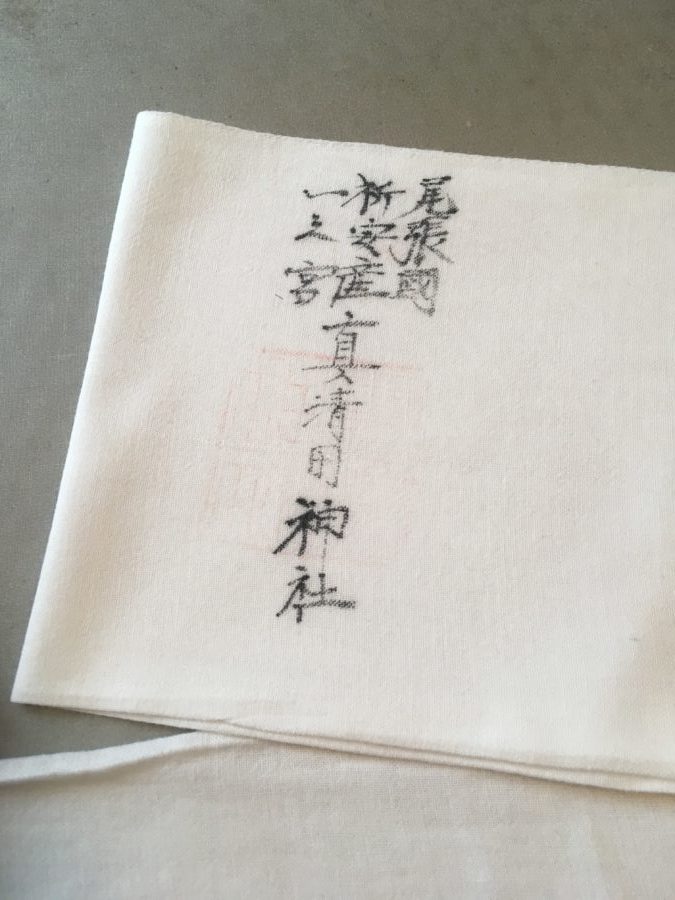 尾張國
祈安産
一之宮
真清田神社